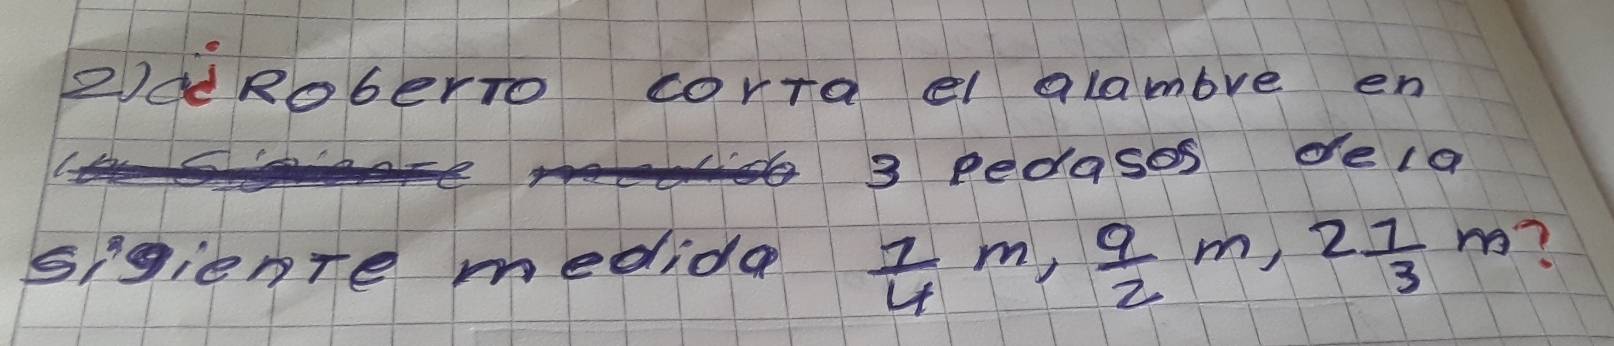 2) ¿Roberto corta el alambre en
3 pedasos de la
sigiente medida 1/4 m, 9/2 m, 2 1/3 m?